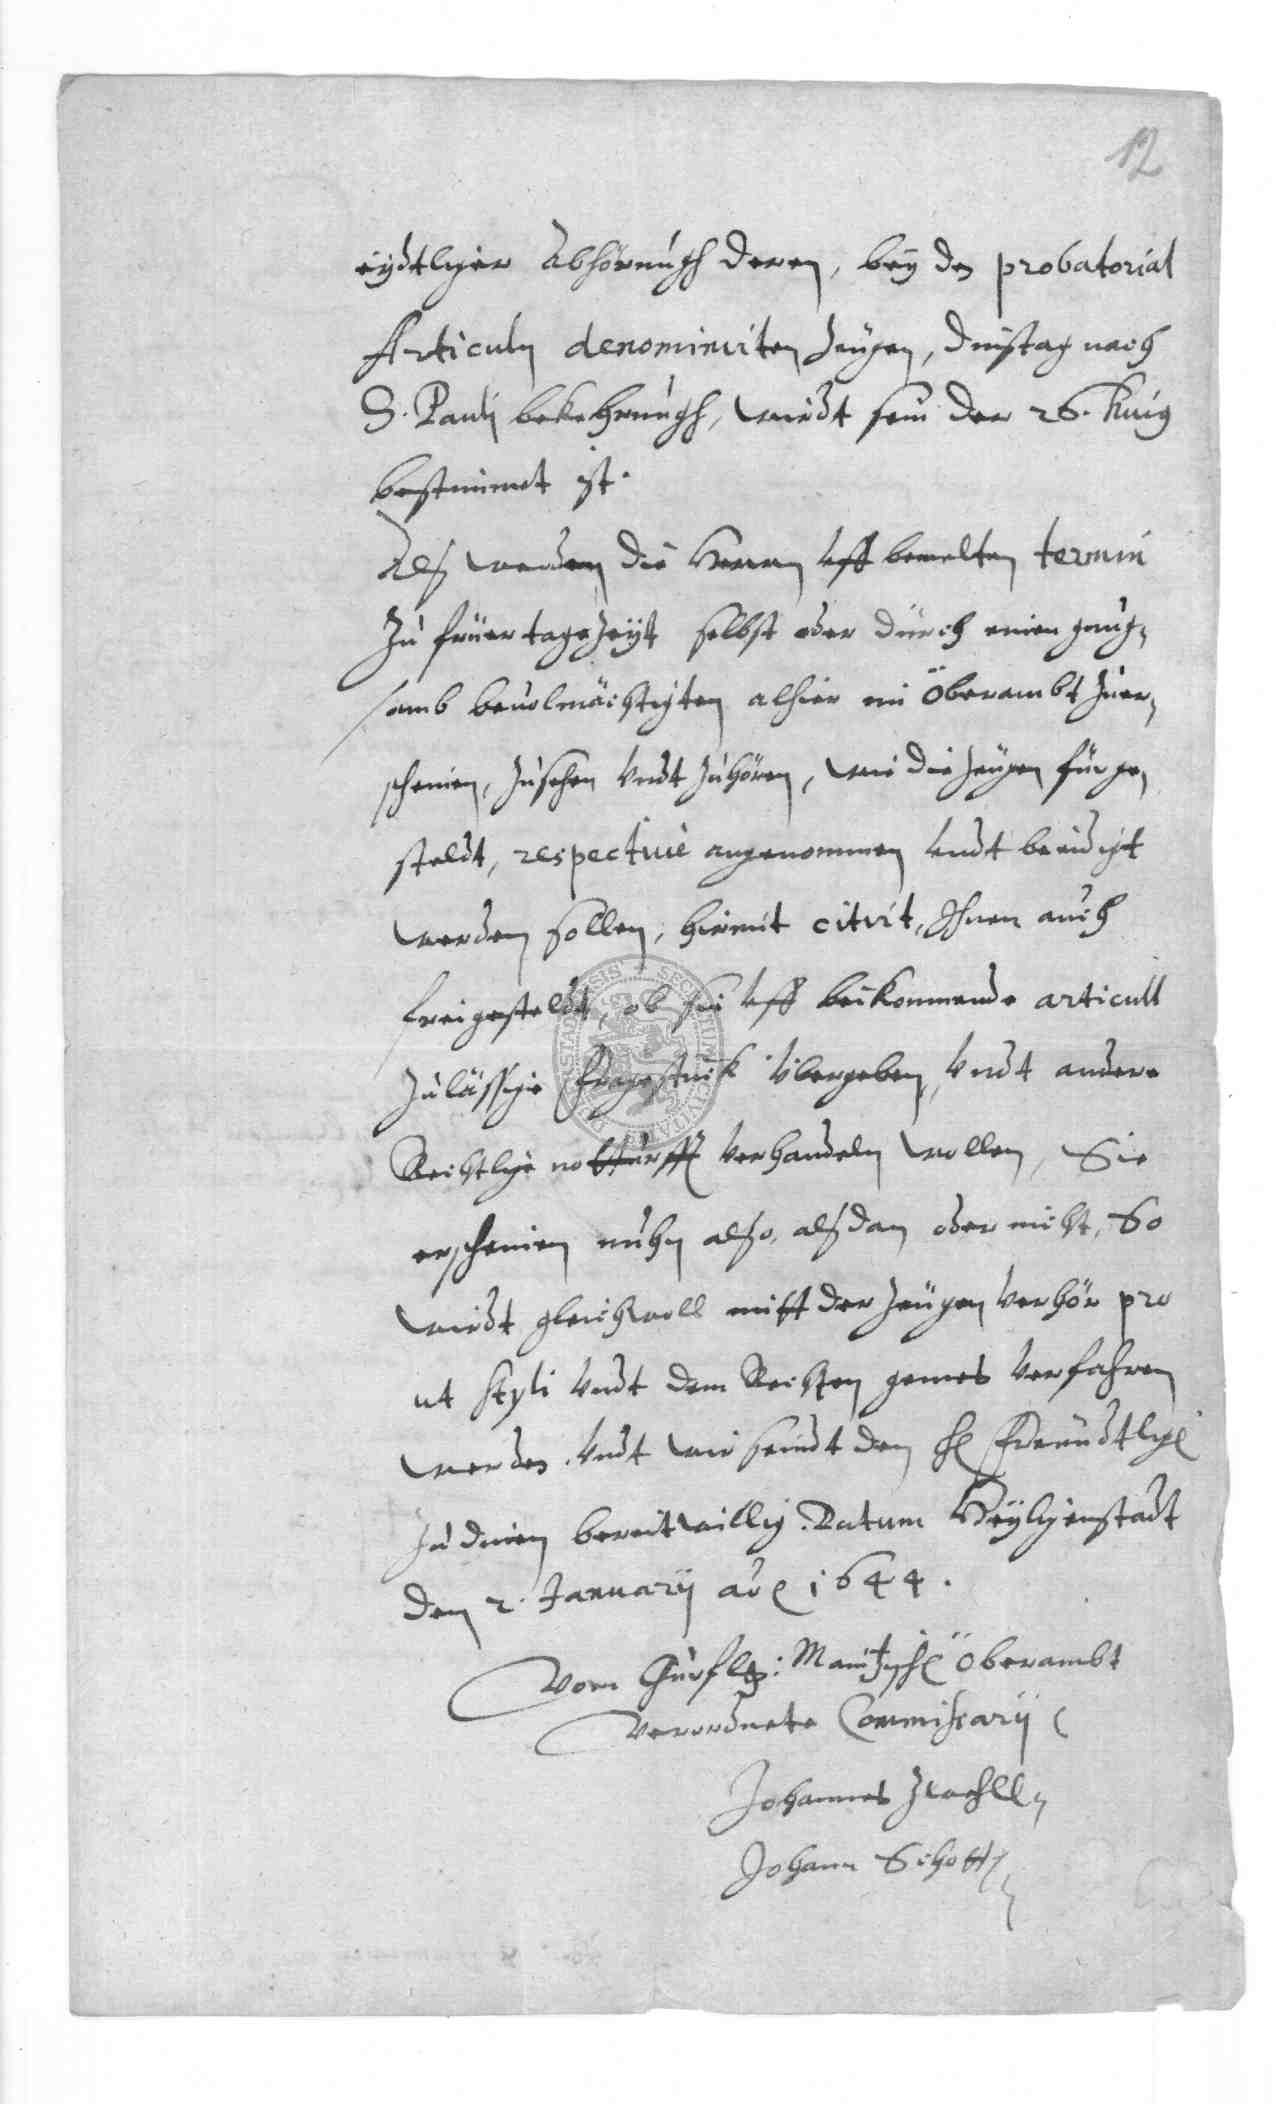 12
eydtlicher Abhörungh deren, bey den probatorial
Articuln denominirten Zeugen, Dinstag nach
S. Pauli bekehrungh, wirdt sein der 26. huig
bestimmet ist.
Alß werden die Herrn vff bemelten termin
Zu früer tagszeyt selbst oder durch einen gnug,
samb beuolmächtigten alhier im Oberambt Zuer,
scheinen, Zusehen vndt Zuhören, wie die Zeugen für ge,
steldt, respectiue angenommen vndt beeidigt
werden sollen, hiemit citirt, Ihnen auch
freigesteldt, ob sie vff beikommende articull
Zulässige Fragstuck vbergeben, vndt andere
Rechtliche notturfft verhandeln wollen, Sie
erscheinen nuhn also, alßdan oder nicht, So
wirdt gleichwoll mitt der Zeugen verhör pro
ut styli vndt dem Rechten gemes verfahren
werden. Vndt wir seindt den H Freundtlich
Zu dinen bereitwillig. Datum Heyligenstadt
den 2. Januarij ao 1644.
Vom Churfl: Maintzisch Oberambt
verordnete Commissarij
Johannes
Johann Schott
SECRETUM CIVITATIS